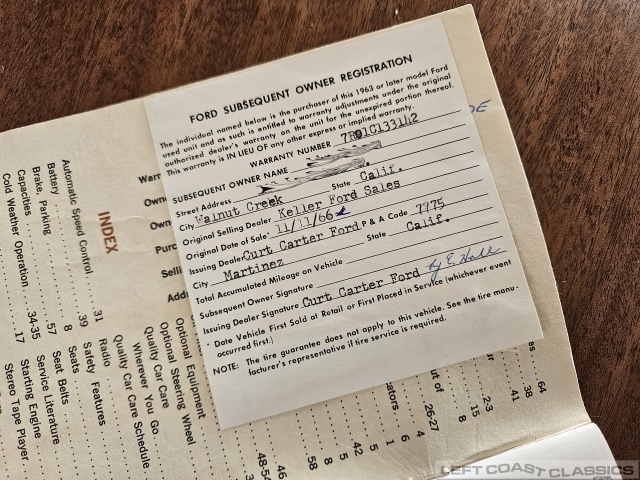 FORD SUBSEQUENT OWNER REGISTRATION
The individual named below is the purchaser of this 1963 or later model Ford
used unit and as such is entitled to warranty adjustments under the original
authorized dealer's warranty on the unit for the unexpired portion thereof.
This warranty is IN LIEU OF any other express or implied warranty.
WARRANTY NUMBER 7R01C133142
SUBSEQUENT OWNER NAME
Street Address
City Walnut Creek State Calif.
Original Selling Dealer Keller Ford Sales
Original Date of Sale* 11/17/66
Issuing Dealer Curt Carter Ford P & A Code 7775
City Martinez State Calif.
Total Accumulated Mileage on Vehicle
Subsequent Owner Signature
Issuing Dealer Signature Curt Carter Ford by E. Hall
* Date Vehicle First Sold at Retail or First Placed in Service (whichever event
occurred first.)
NOTE: The tire guarantee does not apply to this vehicle. See the tire manu-
facturer's representative if tire service is required.
DE
INDEX
Automatic Speed Control 31
Battery 39
Brake, Parking 8
Capacities 57
Cold Weather Operation 34-35
17
Optional Equipment
Optional Steering Wheel
Quality Car Care
Wherever You Go
Quality Car Care Schedule
Radio
Safety Features
Seats
Seat Belts
Service Literature
Starting Engine
Stereo Tape Player
Warr
Own
Own
Purc
Selli
Addi
48-54
46
58
8
5
42
5
1
6
4
26-27
8
15
2-3
41
38
64
ators
ut of
es
LEFT COAST CLASSICS